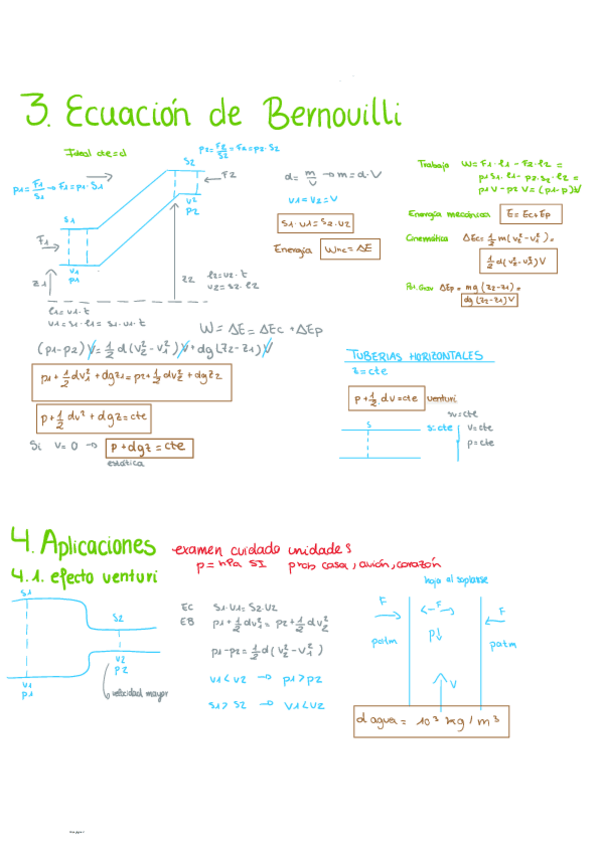 3. Ecuación de Bernouilli
Ideal de=d
p1=F1/S1 → F1=p1·S1
p2=F2/S2=F2=p2·S2
S2
F2
v2
p2
S1
F1
v1
p1
z1
z2
l2=v2·t
v2=s2·l2
l1=v1·t
v1=s1·l1=s1·v1·t
d=m/v → m=d·V
v1=v2=V
s1·v1=s2·v2
Energía Wnc=ΔE
Trabajo W=F1·l1-F2·l2=
p1s1·l1-p2·s2·l2=
p1V-p2V=(p1-p2)V
Energía mecánica E=Ec+Ep
Cinemática ΔEc=1/2 m(v2²-v1²)=
1/2 d(v2²-v1²)V
Pot.Grav ΔEp=mg(z2-z1)=
dg(z2-z1)V
W=ΔE=ΔEc+ΔEp
(p1-p2)V=1/2 d(v2²-v1²)V+dg(z2-z1)V
p1+1/2 dv1²+dgz1=p2+1/2 dv2²+dgz2
p+1/2 dv²+dgz=cte
Si v=0 → p+dgz=cte
estática
TUBERIAS HORIZONTALES
z=cte
p+1/2 dv=cte venturi
s
s:cte
v=cte
p=cte
4. Aplicaciones
examen cuidado unidades
p=hPa SI prob casa, avión, corazón
4.1. efecto venturi
S1
S2
v1
p1
v2
p2
velocidad mayor
EC S1·V1=S2·V2
EB p1+1/2 dv1²=p2+1/2 dv2²
p1-p2=1/2 d(v2²-v1²)
v1<v2 → p1>p2
s1>s2 → v1<v2
hoja al soplarse
F
F
F
patm
p↓
patm
v
d agua = 10³ kg/m³